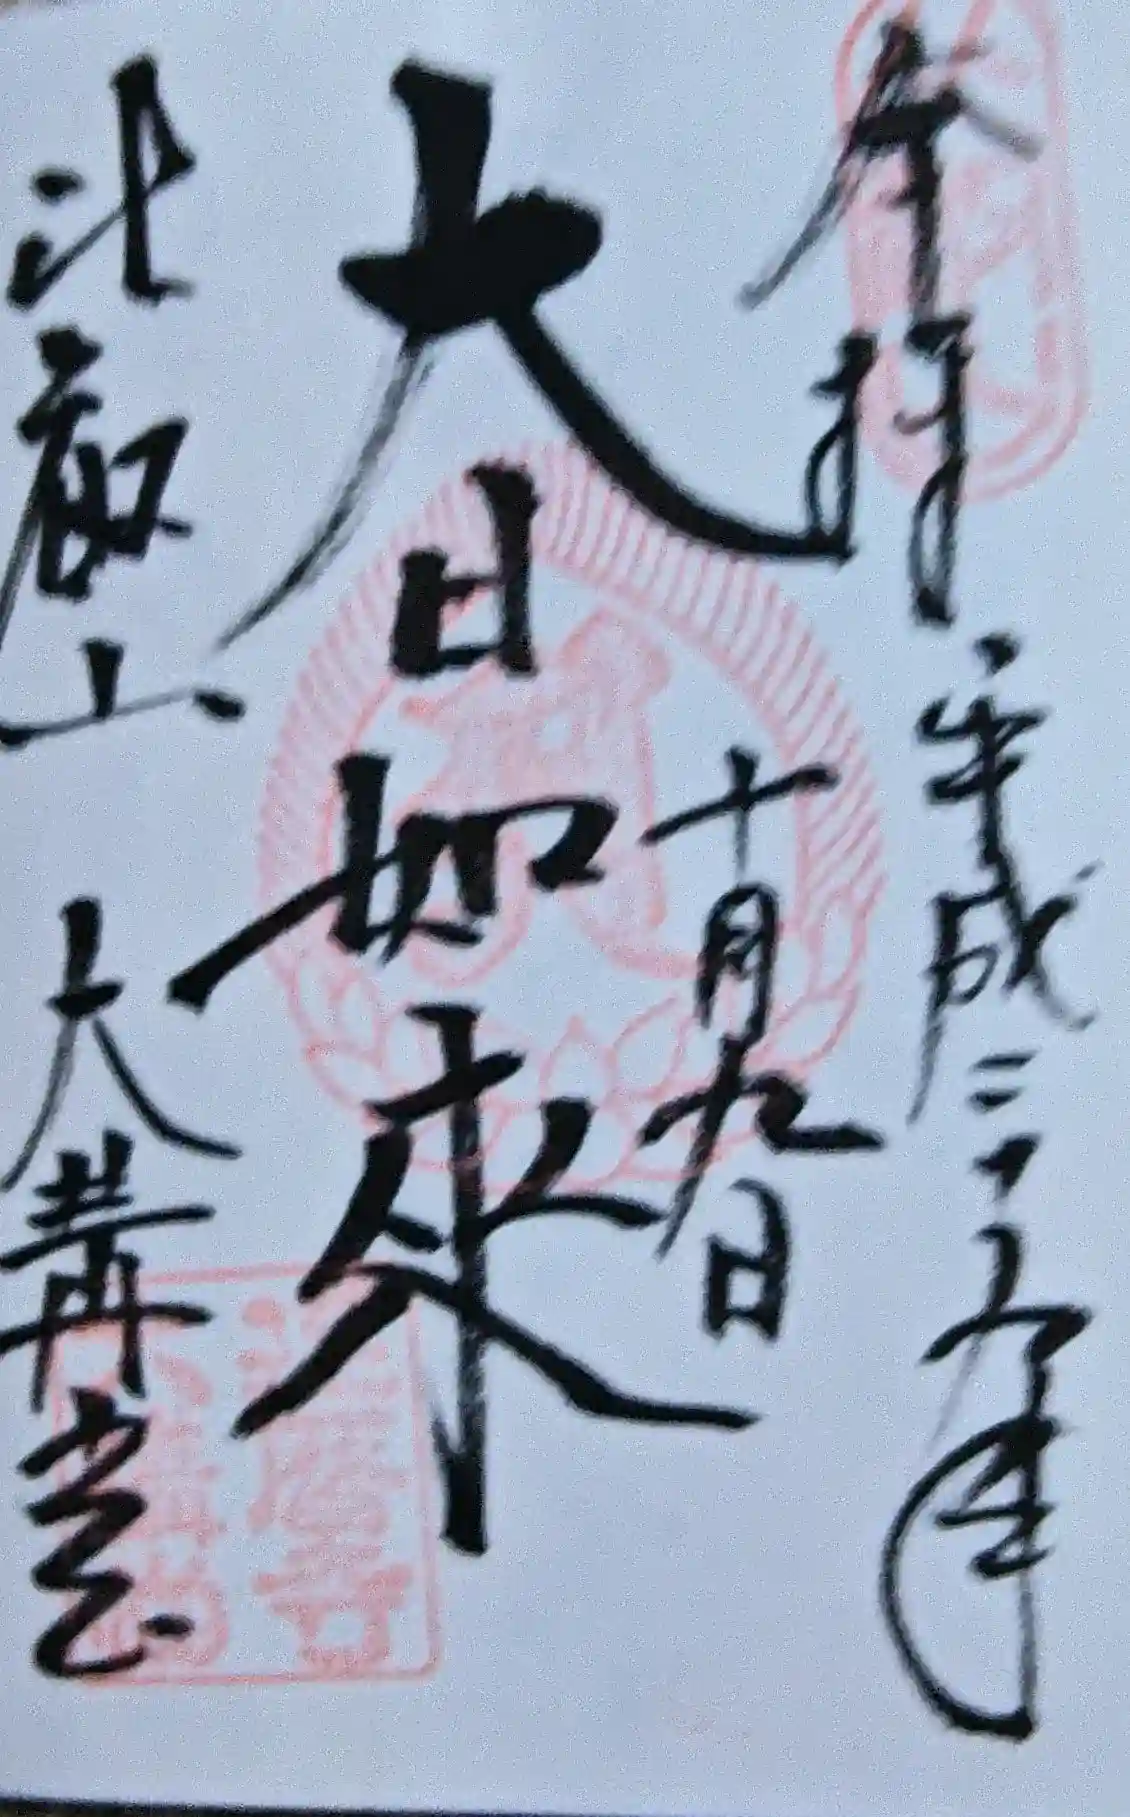 奉拝 平成二十年
十月九日
大日如来
比叡山 大講堂